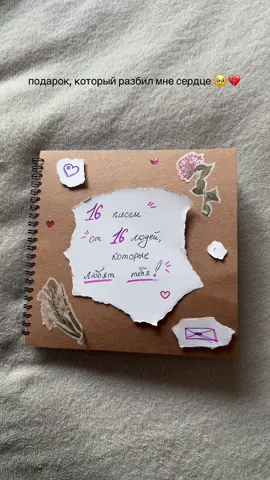 подарок, который разбил мне сердце 🥺💔
16 писем
от 16 людей,
которые
любят тебя!